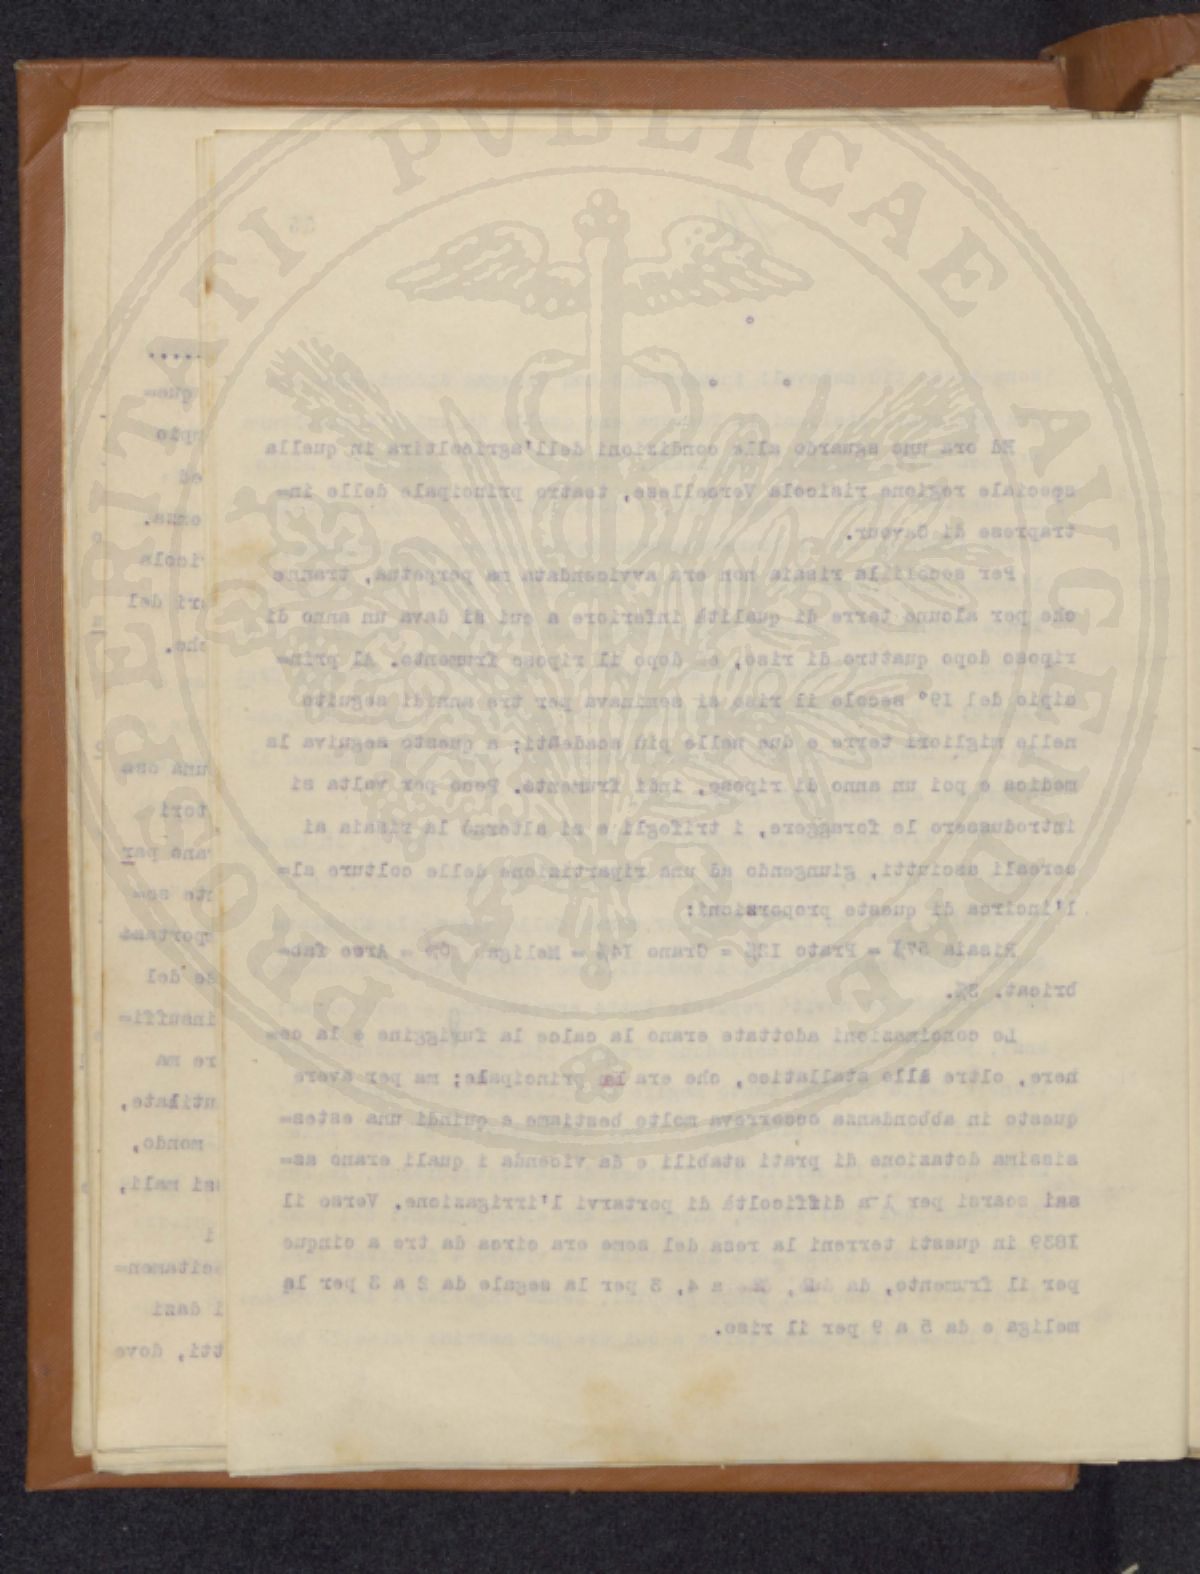 35
Ed ora uno sguardo alle condizioni dell'agricoltira in quella
speciale regione risicola Vercellese, teatro principale delle in=
traprese di Cavour.
Per secoli la risaia non era avvicendata ma perpetua, tranne
che per alcune terre di qualità inferiore a cui si dava un anno di
riposo dopo quattro di riso, e dopo il riposo frumento. Al prin=
cipio del 19° secolo il riso si seminava per tre anni di seguito
nelle migliori terre e due nelle più scadenti; a questo seguiva la
medica e poi un anno di riposo, indi frumento. Poco per volta si
introdussero le foraggere, i trifogli e si alternò la risaia ai
cereali asciutti, giungendo ad una ripartizione delle colture al=
l'incirca di queste proporzioni:
Risaia 57% = Prato 12% = Grano 14% = Meliga 6% = Aree fab=
bricat. 3%.
Le concimazioni adottate erano la calce la fuliggine e la ce=
nere, oltre allo stallatico, che era la principale; ma per avere
questo in abbondanza occorreva molto bestiame e quindi una estes=
sissima dotazione di prati stabili e da vicenda i quali erano as=
sai scarsi per la difficoltà di portarvi l'irrigazione. Verso il
1839 in questi terreni la resa del seme era circa da tre a cinque
per il frumento, da due a 4, 5 per la segale da 2 a 3 per la
meliga e da 5 a 9 per il riso.
.....
que=
mpio
ed
enza.
ricola
ri del
che.
una osa
tori
rano par
te se=
portasi
ze del
insuffi=
re ma
ntilate,
mondo,
si mali,
i
citamen=
i dazi
tti, dove
PROSPERITATI PVBLICAE AVGENDAE